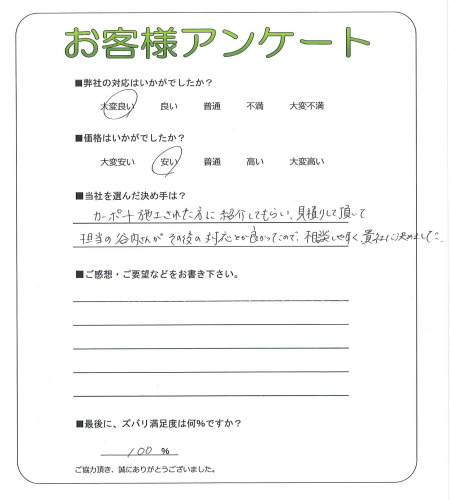 お客様アンケート
■弊社の対応はいかがでしたか？
大変良い 良い 普通 不満 大変不満
■価格はいかがでしたか？
大変安い 安い 普通 高い 大変高い
■当社を選んだ決め手は？
カーポート施工された方に紹介してもらい、見積りして頂いて
担当の谷内さんが その後の対応とか良かったので、相談しやすく貴社に決めました。
■ご感想・ご要望などをお書き下さい。
■最後に、ズバリ満足度は何%ですか？
100 %
ご協力頂き、誠にありがとうございました。